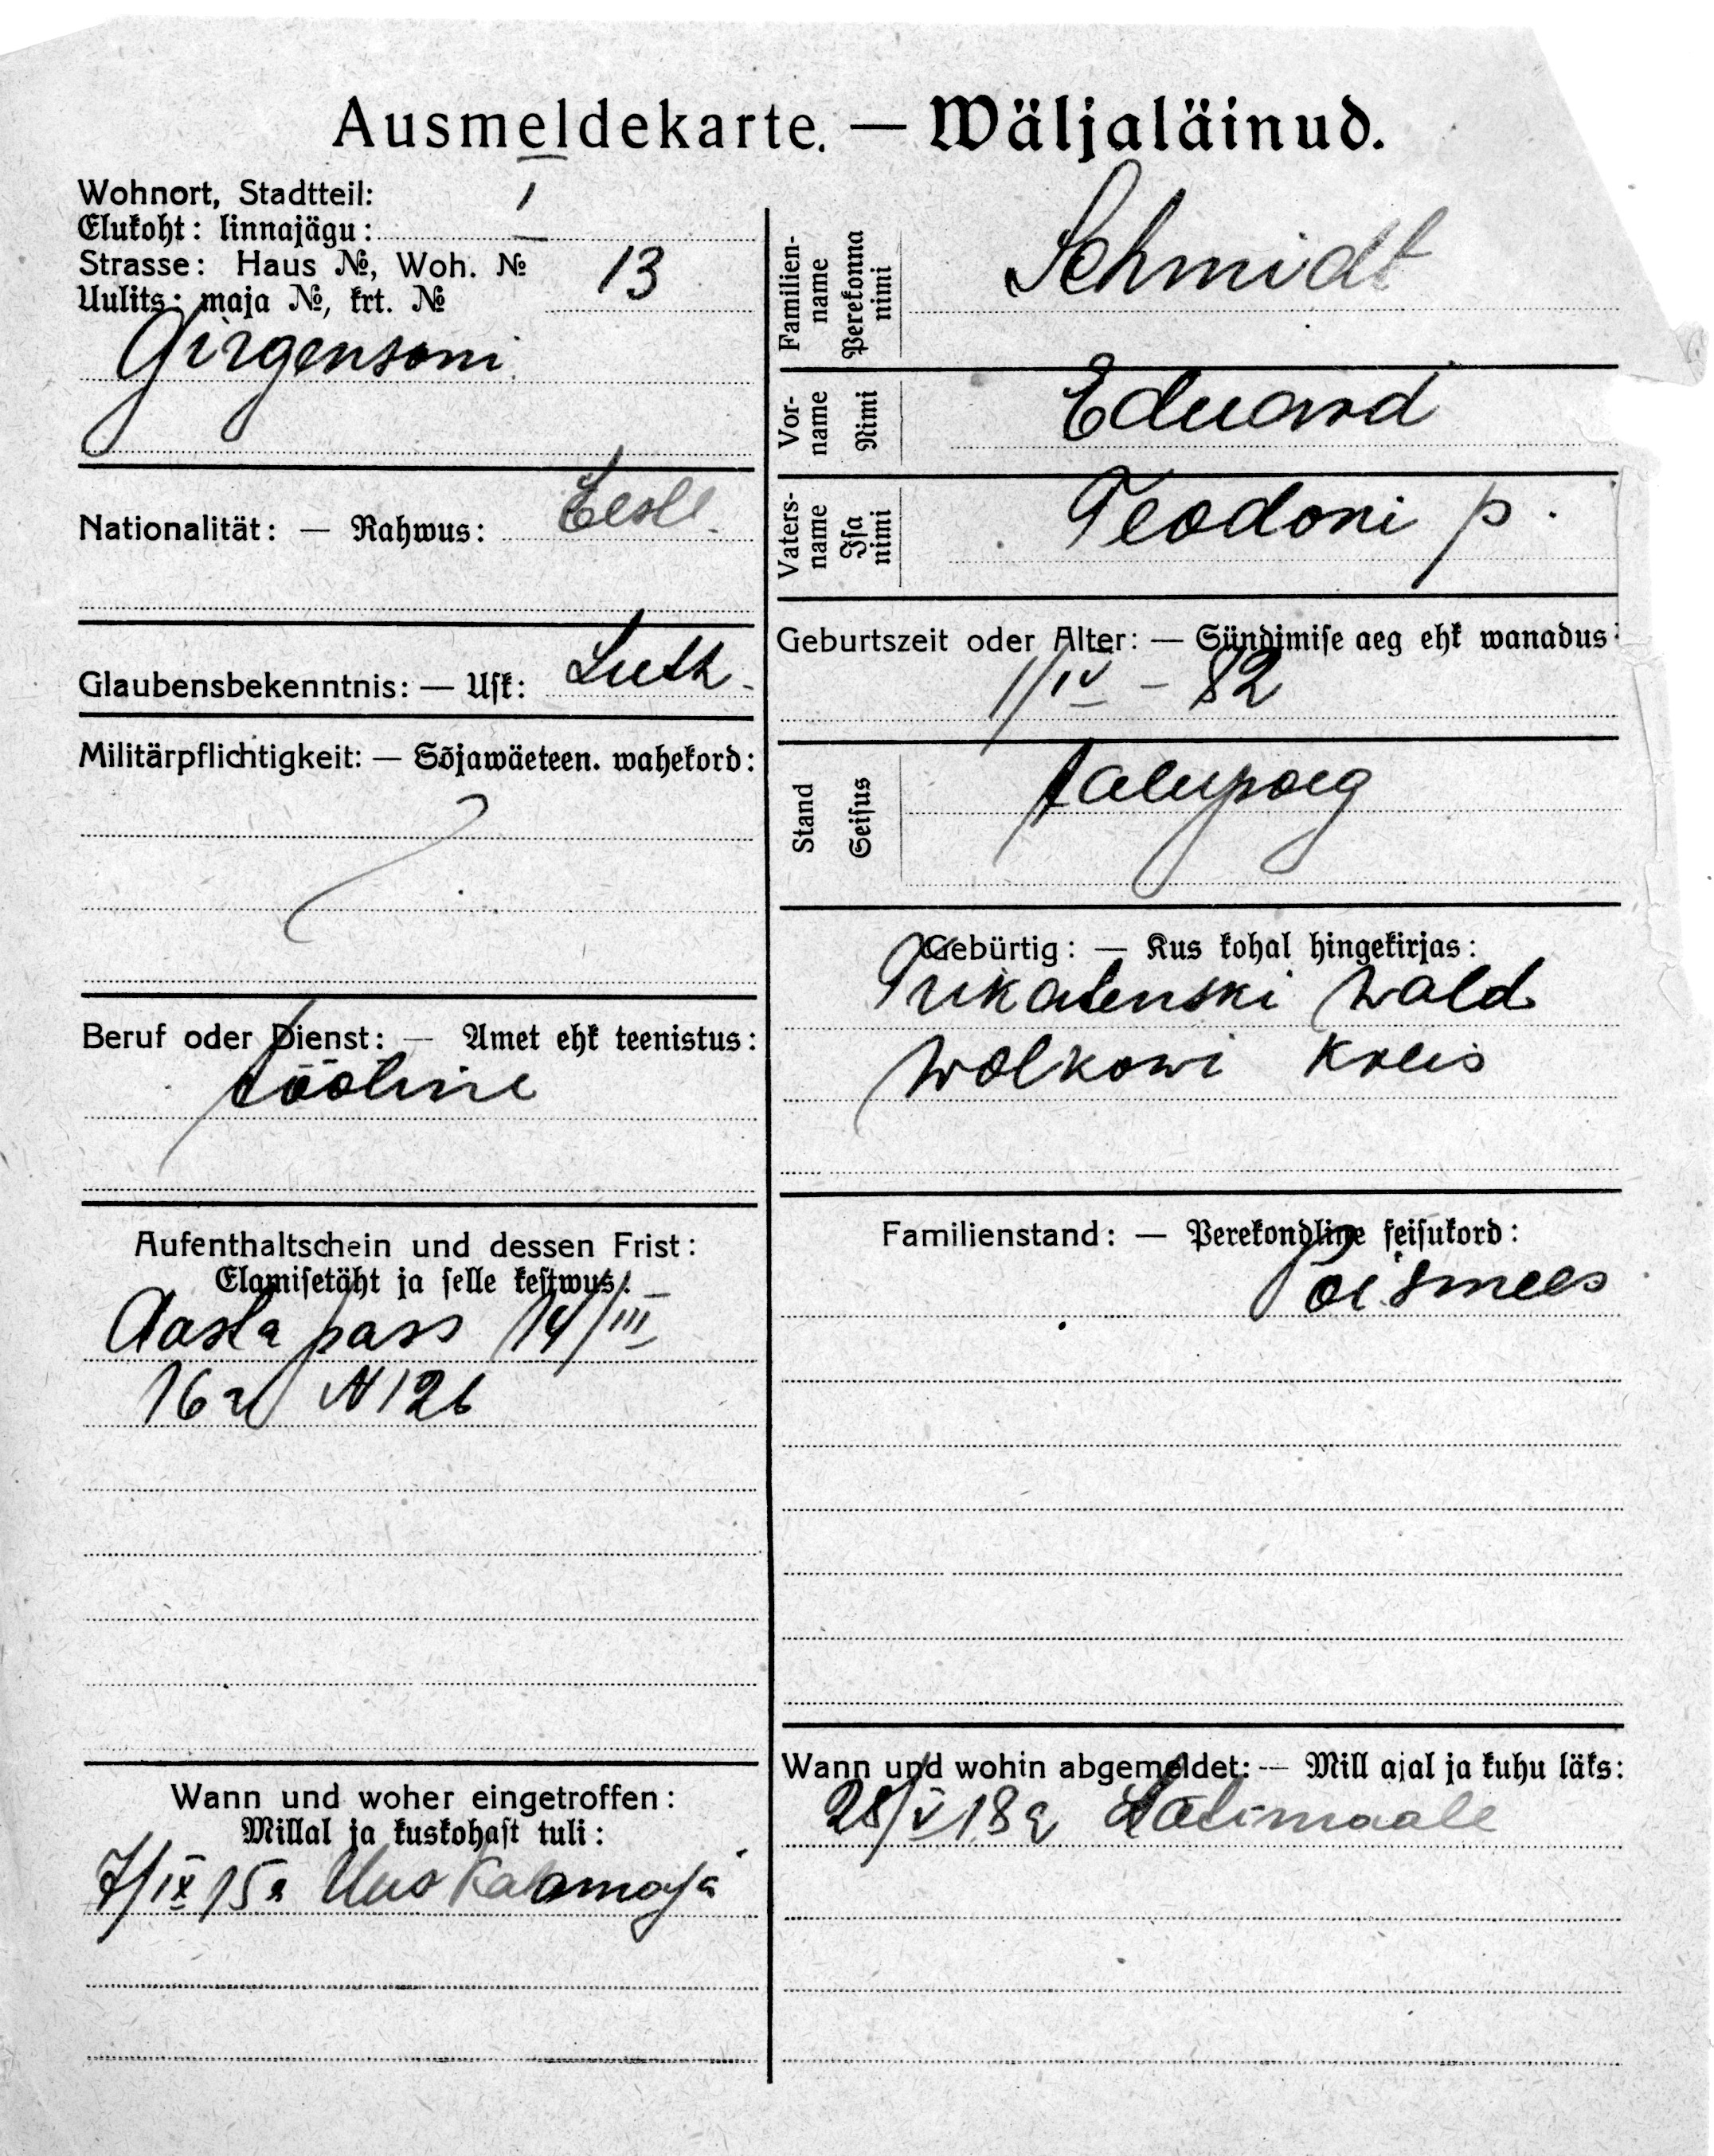 Ausmeldekarte. — Wäljaläinud.
Wohnort, Stadtteil: I
Elukoht: linnajägu:
Strasse: Haus №, Woh. № 13
Uulits: maja №, krt. №
Girgensoni
Nationalität: — Rahwus: Eestl.
Glaubensbekenntnis: — Usk: Luth.
Militärpflichtigkeit: — Sõjawäeteen. wahekord:
Beruf oder Dienst: — Amet ehk teenistus:
tööline
Aufenthaltschein und dessen Frist:
Elamisetäht ja selle kestwus:
Aasta pass 14/III
16 a N 126
Wann und woher eingetroffen:
Millal ja kuskohast tuli:
7/IX 15 a Uus Kalamaja
Familien-
name
Perekonna
nimi
Schmidt
Vor-
name
Nimi
Eduard
Vaters-
name
Isa
nimi
Teodori p.
Geburtszeit oder Alter: — Sündimise aeg ehk wanadus:
1/IV – 82
Stand
Seisus
talupoeg
Gebürtig: — Kus kohal hingekirjas:
wald
Wolkowi Kreis
Familienstand: — Perekondline seisukord:
Poismees
Wann und wohin abgemeldet: — Mill ajal ja kuhu läks:
28/V 18 a Lätimaale